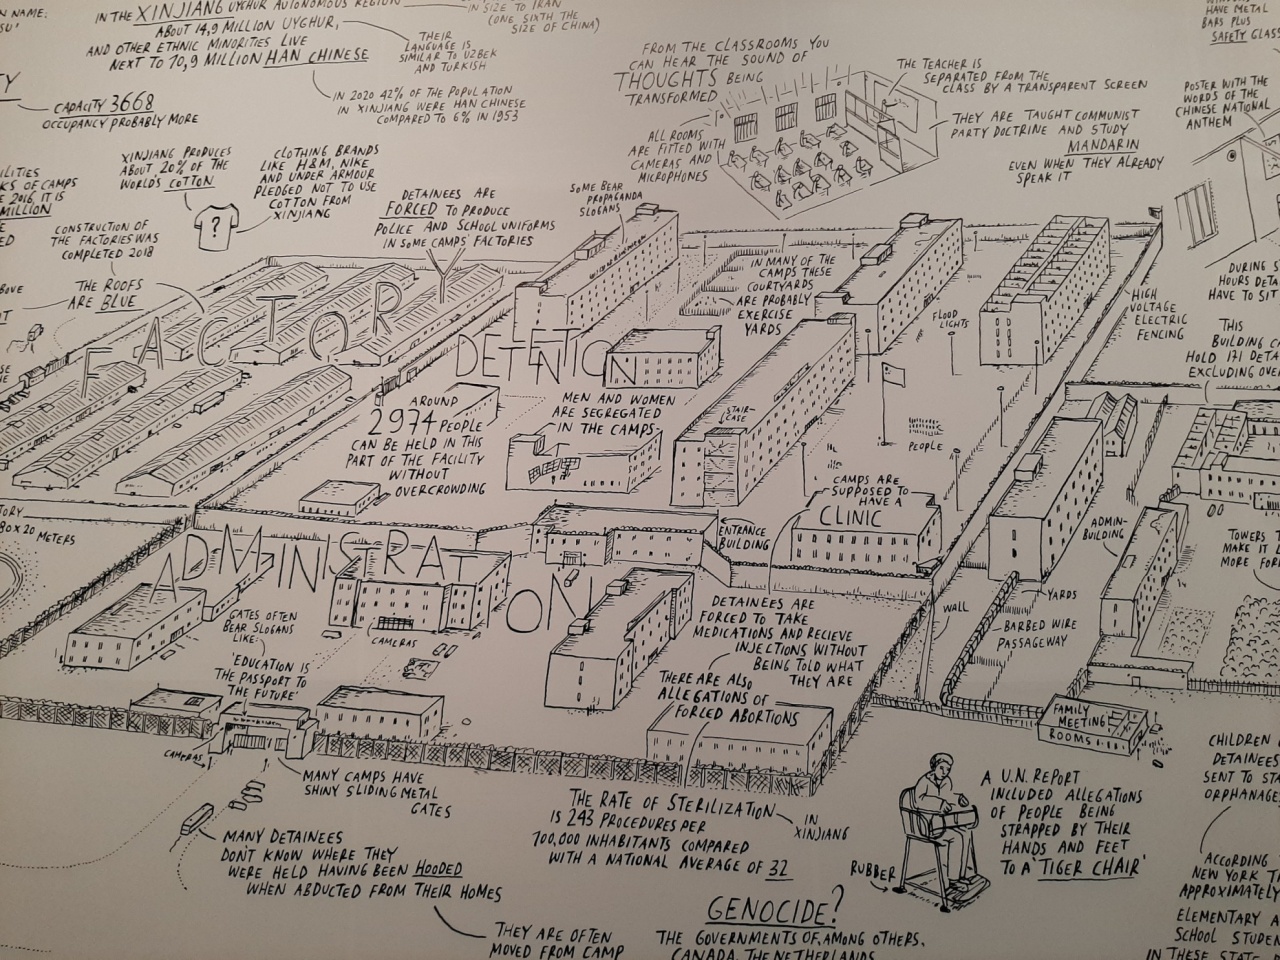 N NAME:
SU'
IN THE XINJIANG UYGHUR AUTONOMOUS REGION
ABOUT 14,9 MILLION UYGHUR,
AND OTHER ETHNIC MINORITIES LIVE
NEXT TO 10,9 MILLION HAN CHINESE
IN SIZE TO IRAN
(ONE SIXTH THE
SIZE OF CHINA)
THEIR
LANGUAGE IS
SIMILAR TO UZBEK
AND TURKISH
IN 2020 42% OF THE POPULATION
IN XINJIANG WERE HAN CHINESE
COMPARED TO 6% IN 1953
CAPACITY 3668
OCCUPANCY PROBABLY MORE
FROM THE CLASSROOMS YOU
CAN HEAR THE SOUND OF
THOUGHTS BEING
TRANSFORMED
ALL ROOMS
ARE FITTED WITH
CAMERAS AND
MICROPHONES
THE TEACHER IS
SEPARATED FROM THE
CLASS BY A TRANSPARENT SCREEN
THEY ARE TAUGHT COMMUNIST
PARTY DOCTRINE AND STUDY
MANDARIN
EVEN WHEN THEY ALREADY
SPEAK IT
HAVE METAL
BARS PLUS
SAFETY GLASS
POSTER WITH THE
WORDS OF THE
CHINESE NATIONAL
ANTHEM
XINJIANG PRODUCES
ABOUT 20% OF THE
WORLD'S COTTON
?
CLOTHING BRANDS
LIKE H&M, NIKE
AND UNDER ARMOUR
PLEDGED NOT TO USE
COTTON FROM
XINJIANG
ILITIES
KS OF CAMPS
E 2016, IT IS
MILLION
CONSTRUCTION OF
THE FACTORIES WAS
COMPLETED 2018
THE ROOFS
ARE BLUE
DETAINEES ARE
FORCED TO PRODUCE
POLICE AND SCHOOL UNIFORMS
IN SOME CAMPS' FACTORIES
SOME BEAR
PROPAGANDA
SLOGANS
IN MANY OF
THE CAMPS THESE
COURTYARDS
ARE PROBABLY
EXERCISE
YARDS
FLOOD
LIGHTS
HIGH
VOLTAGE
ELECTRIC
FENCING
DURING S
HOURS DETA
HAVE TO SIT
THIS
BUILDING CA
HOLD 171 DETA
EXCLUDING OVE
FACTORY
DETENTION
AROUND
2974 PEOPLE
CAN BE HELD IN THIS
PART OF THE FACILITY
WITHOUT
OVERCROWDING
MEN AND WOMEN
ARE SEGREGATED
IN THE CAMPS
STAIR-
CASE
PEOPLE
CAMPS ARE
SUPPOSED TO
HAVE A
CLINIC
ENTRANCE
BUILDING
ADMIN-
BUILDING
TORY
80 X 20 METERS
TOWERS T
MAKE IT L
MORE FOR
ADMINISTRATION
GATES OFTEN
BEAR SLOGANS
LIKE:
'EDUCATION IS
THE PASSPORT TO
THE FUTURE'
CAMERAS
DETAINEES ARE
FORCED TO TAKE
MEDICATIONS AND RECIEVE
INJECTIONS WITHOUT
BEING TOLD WHAT
THEY ARE
THERE ARE ALSO
ALLEGATIONS OF
FORCED ABORTIONS
WALL
YARDS
BARBED WIRE
PASSAGEWAY
FAMILY
MEETING
ROOMS
CAMERAS
MANY CAMPS HAVE
SHINY SLIDING METAL
GATES
MANY DETAINEES
DON'T KNOW WHERE THEY
WERE HELD HAVING BEEN HOODED
WHEN ABDUCTED FROM THEIR HOMES
THEY ARE OFTEN
MOVED FROM CAMP
THE RATE OF STERILIZATION
IS 243 PROCEDURES PER
100,000 INHABITANTS COMPARED
WITH A NATIONAL AVERAGE OF 32
IN
XINJIANG
RUBBER
A U.N. REPORT
INCLUDED ALLEGATIONS
OF PEOPLE BEING
STRAPPED BY THEIR
HANDS AND FEET
TO A 'TIGER CHAIR'
GENOCIDE?
THE GOVERNMENTS OF, AMONG OTHERS,
CANADA, THE NETHERLANDS
CHILDREN
DETAINEES
SENT TO STA
ORPHANAGE
ACCORDING
NEW YORK T
APPROXIMATELY
ELEMENTARY A
SCHOOL STUDEN
IN THESE STATE